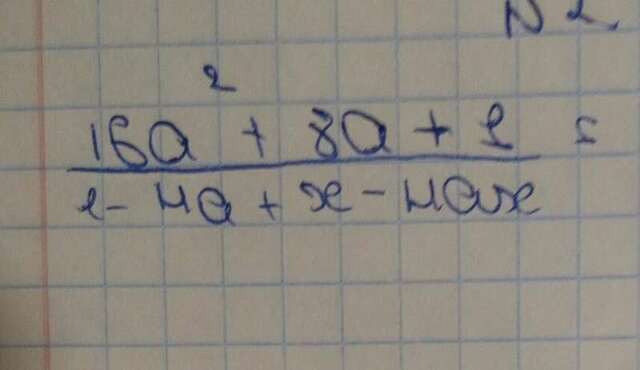 N 2
16a² + 8a + 1 =
1 - 4a + x - 4ax